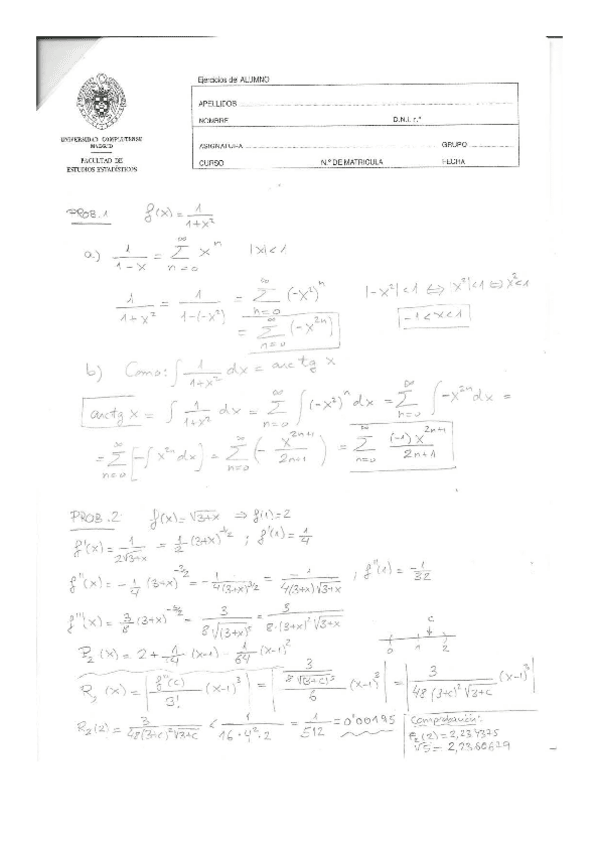 UNIVERSIDAD COMPLUTENSE
MADRID
FACULTAD DE
ESTUDIOS ESTADÍSTICOS
Ejercicios del ALUMNO
APELLIDOS
NOMBRE D.N.I. n.º
ASIGNATURA GRUPO
CURSO N.º DE MATRICULA FECHA
PROB.1 f(x) = 1/(1+x²)
a.) 1/(1-x) = ∑_{n=0}^{∞} x^n |x|<1
1/(1+x²) = 1/(1-(-x²)) = ∑_{n=0}^{∞} (-x²)^n |-x²|<1 ⇔ |x²|<1 ⇔ x²<1
= ∑_{n=0}^{∞} (-x^{2n}) -1<x<1
b) Como: ∫ 1/(1+x²) dx = arc tg x
arctg x = ∫ 1/(1+x²) dx = ∑_{n=0}^{∞} ∫ (-x²)^n dx = ∑_{n=0}^{∞} ∫ -x^{2n} dx =
= ∑_{n=0}^{∞} [-∫ x^{2n} dx] = ∑_{n=0}^{∞} (- x^{2n+1}/(2n+1)) = ∑_{n=0}^{∞} (-1) x^{2n+1}/(2n+1)
PROB.2: f(x) = √(3+x) ⇒ f(1)=2
f'(x) = 1/(2√(3+x)) = 1/2 (3+x)^{-1/2} ; f'(1) = 1/4
f''(x) = -1/4 (3+x)^{-3/2} = -1/(4(3+x)^{3/2}) = -1/(4(3+x)√(3+x)) ; f''(1) = -1/32
f'''(x) = 3/8 (3+x)^{-5/2} = 3/(8√(3+x)^5) = 3/(8·(3+x)²√(3+x))
c
0 1 2
P₂(x) = 2 + 1/4 (x-1) - 1/64 (x-1)²
R₂(x) = |f'''(c)/3! (x-1)³| = |(3/(8√(3+c)^5))/6 (x-1)³| = |3/(48(3+c)²√(3+c)) (x-1)³|
R₂(2) = 3/(48(3+c)²√(3+c)) < 1/(16·4²·2) = 1/512 = 0'00195
Comprobación:
P₂(2) = 2,234375
√5 = 2,2360679